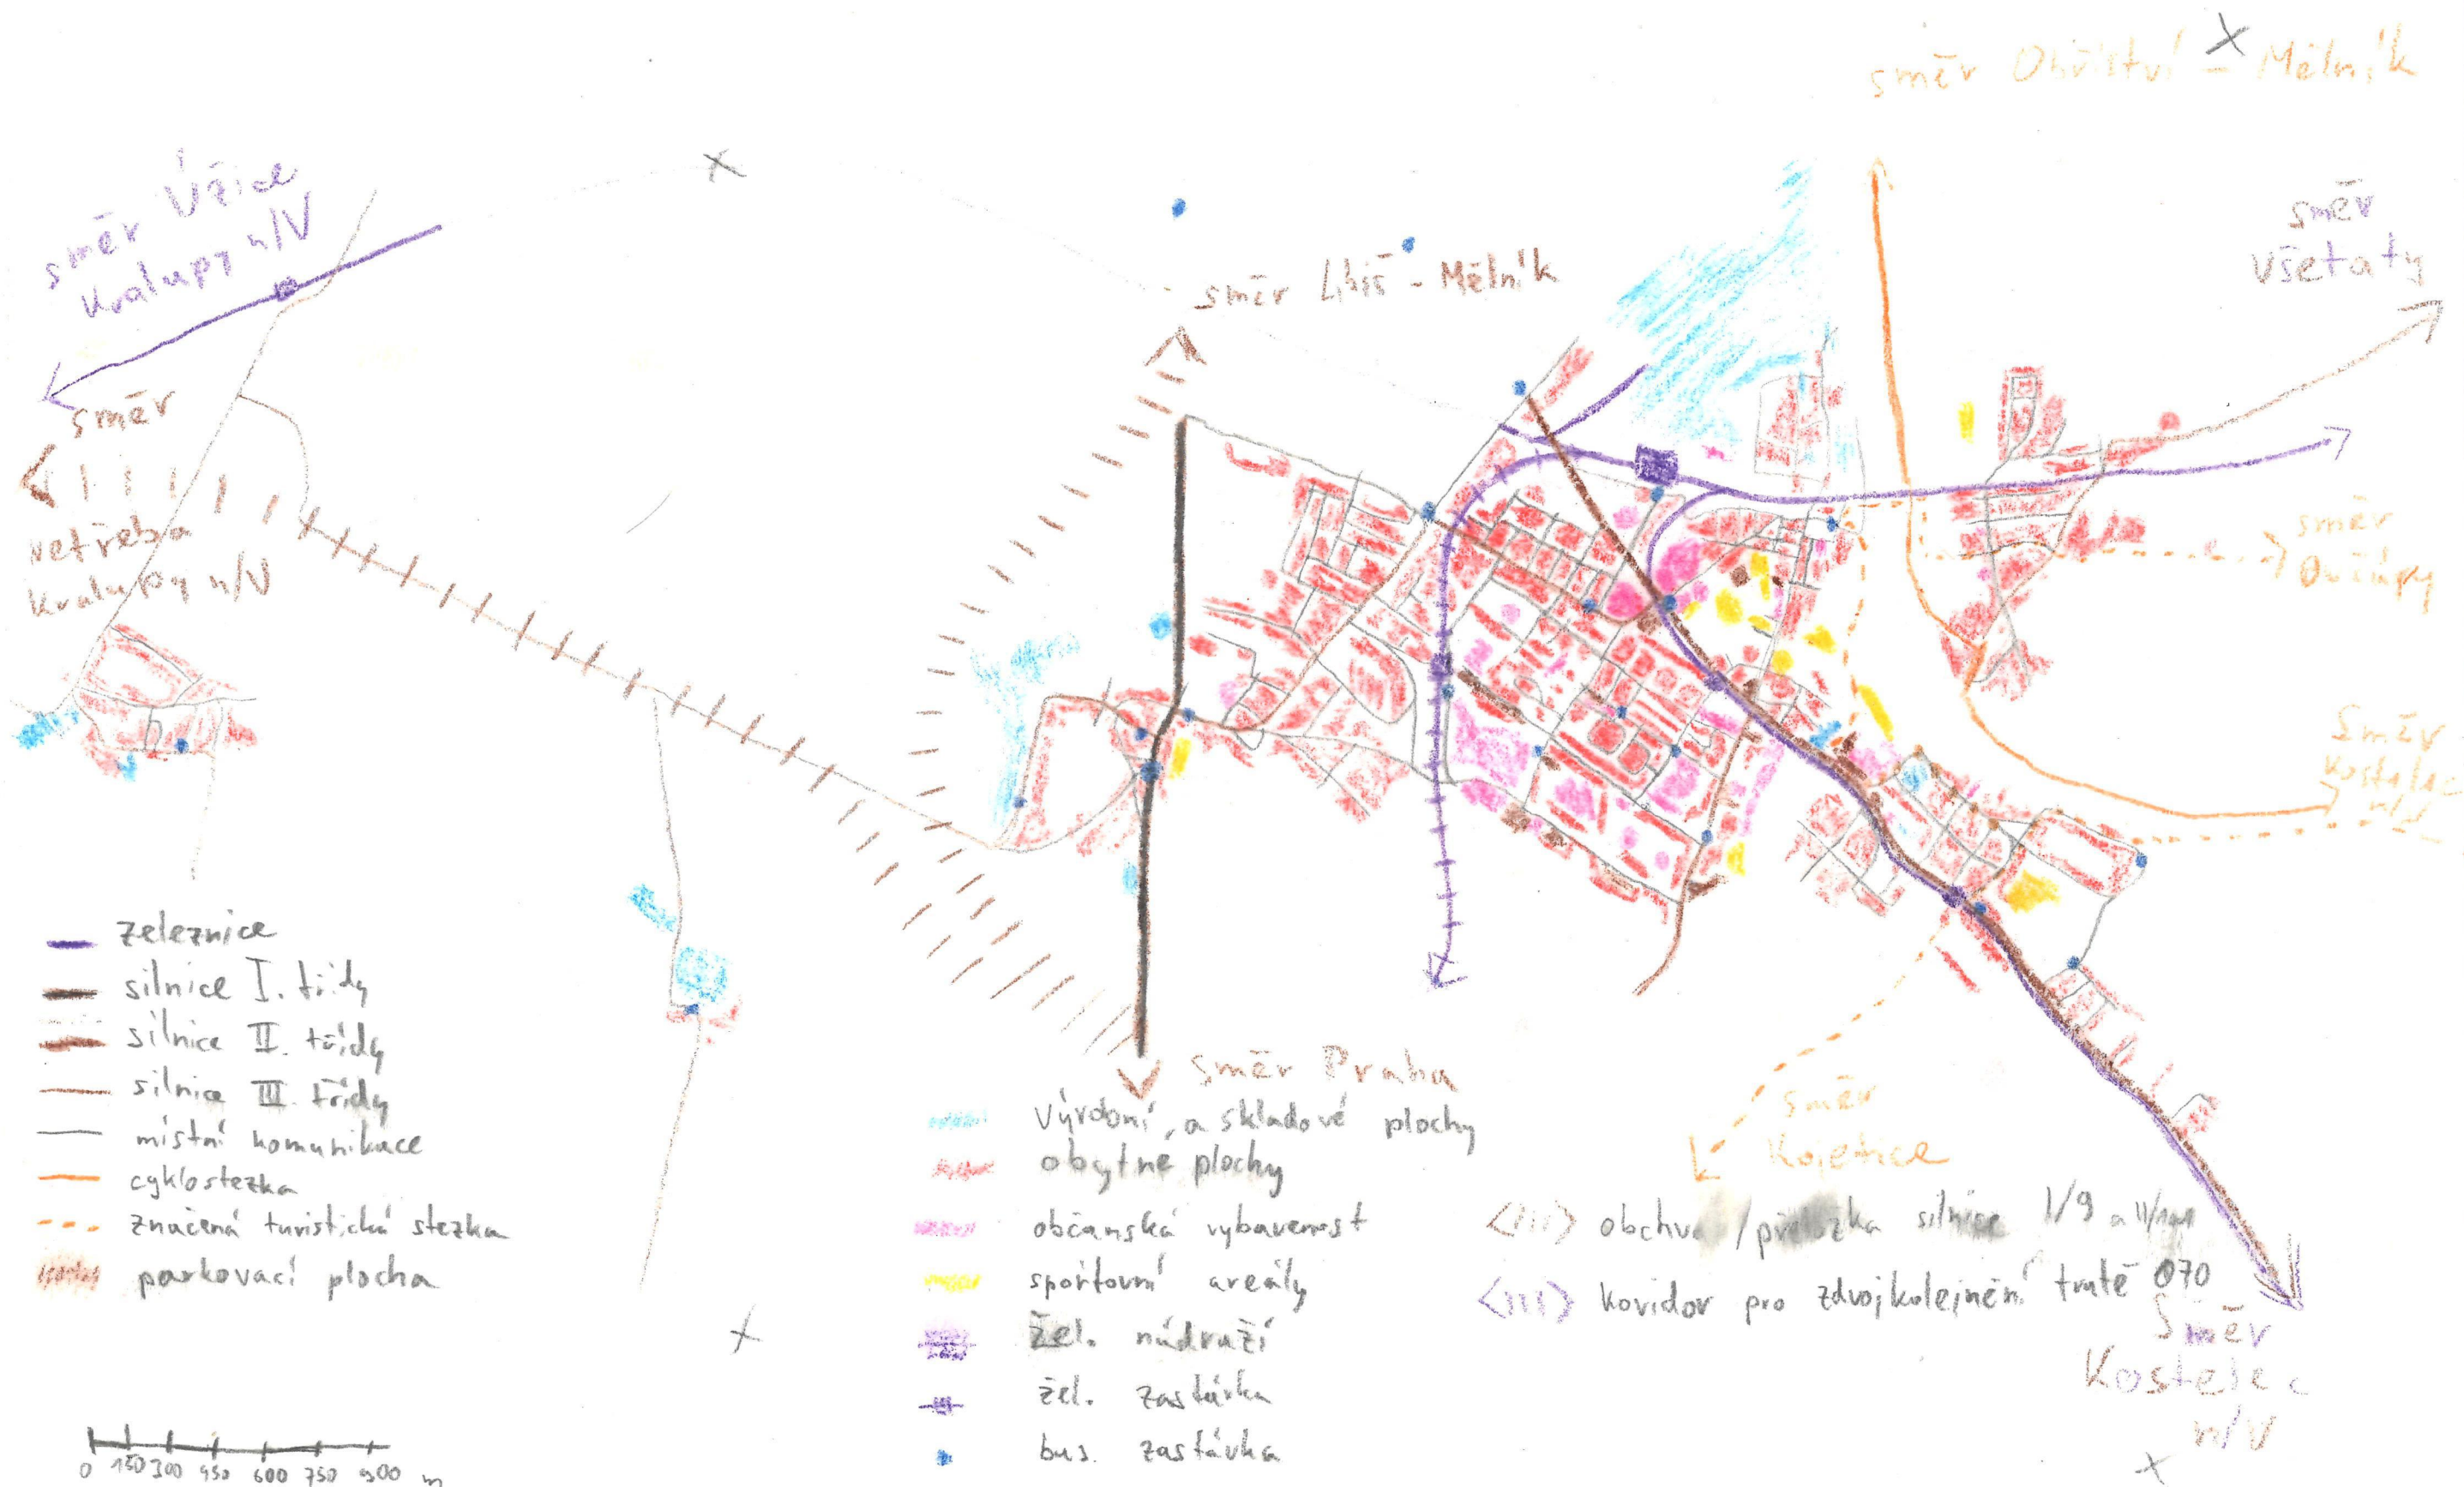 směr Obříství - Mělník
směr Úžice
Kralupy n/V
směr
Netřeba
Kralupy n/V
směr Libiš - Mělník
směr
Všetaty
směr
Ovčáry
směr
Kostelec
n/V
směr Praha
směr
Kojetice
směr
Kostelec
n/V
železnice
silnice I. třídy
silnice II. třídy
silnice III. třídy
místní komunikace
cyklostezka
značená turistická stezka
parkovací plocha
výrobní a skladové plochy
obytné plochy
občanská vybavenost
sportovní areály
žel. nádraží
žel. zastávka
bus. zastávka
obchvat/přeložka silnice I/9 a II/101
koridor pro zdvojkolejnění tratě 070
0 150 300 450 600 750 900 m